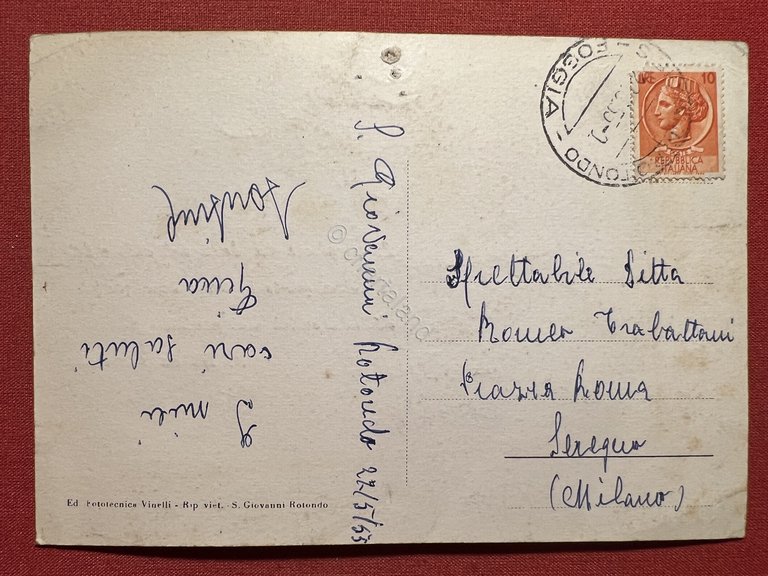 S. Giovanni Rotondo 22/5/55
I miei
cari saluti
Gina
Spettabile Ditta
Romeo Trabattoni
Piazza Roma
Seregno
(Milano)
Ed. Fototecnica Vinelli - Rip viet. - S. Giovanni Rotondo
ROTONDO - FOGGIA -
LIRE 10
REPUBBLICA
ITALIANA